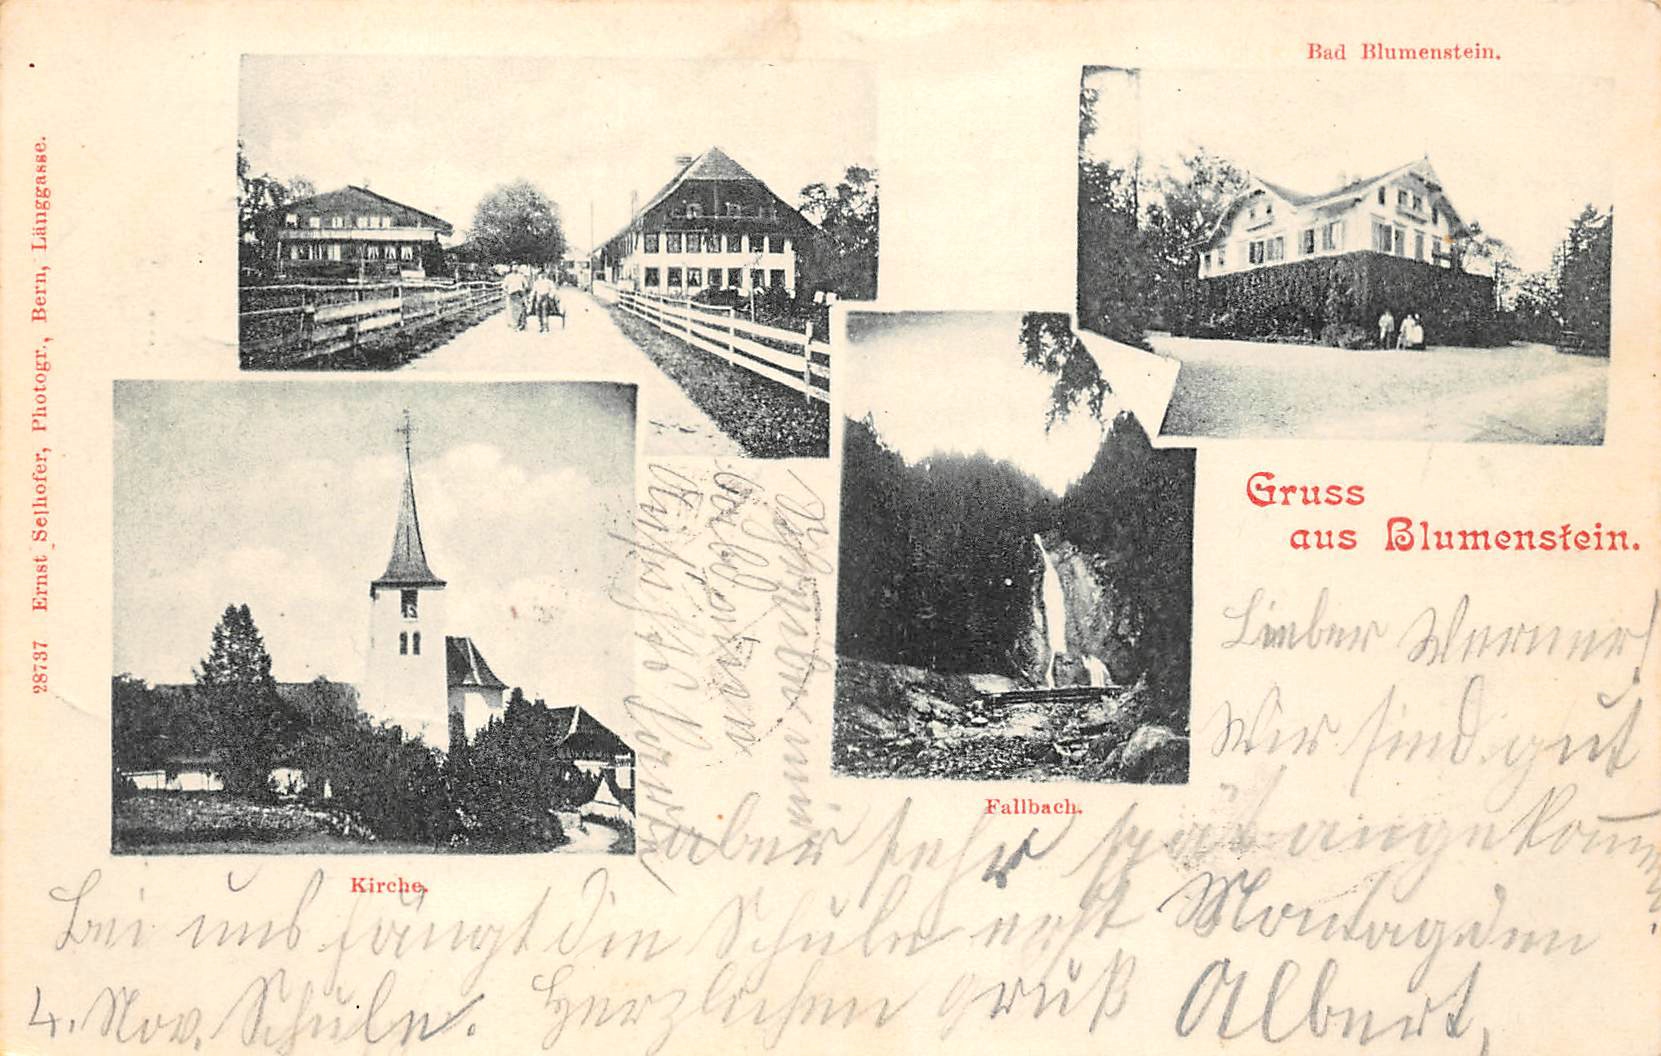 Bad Blumenstein.
28737 Ernst Selhofer, Photogr., Bern, Länggasse.
Gruss
aus Blumenstein.
Fallbach.
Kirche.
Lieber Werner!
Wir sind gut
aber sehr spät angekommen.
Bei uns fängt die Schule erst Montag den
4. Nov. Schule. Herzlichen Gruß Albert.